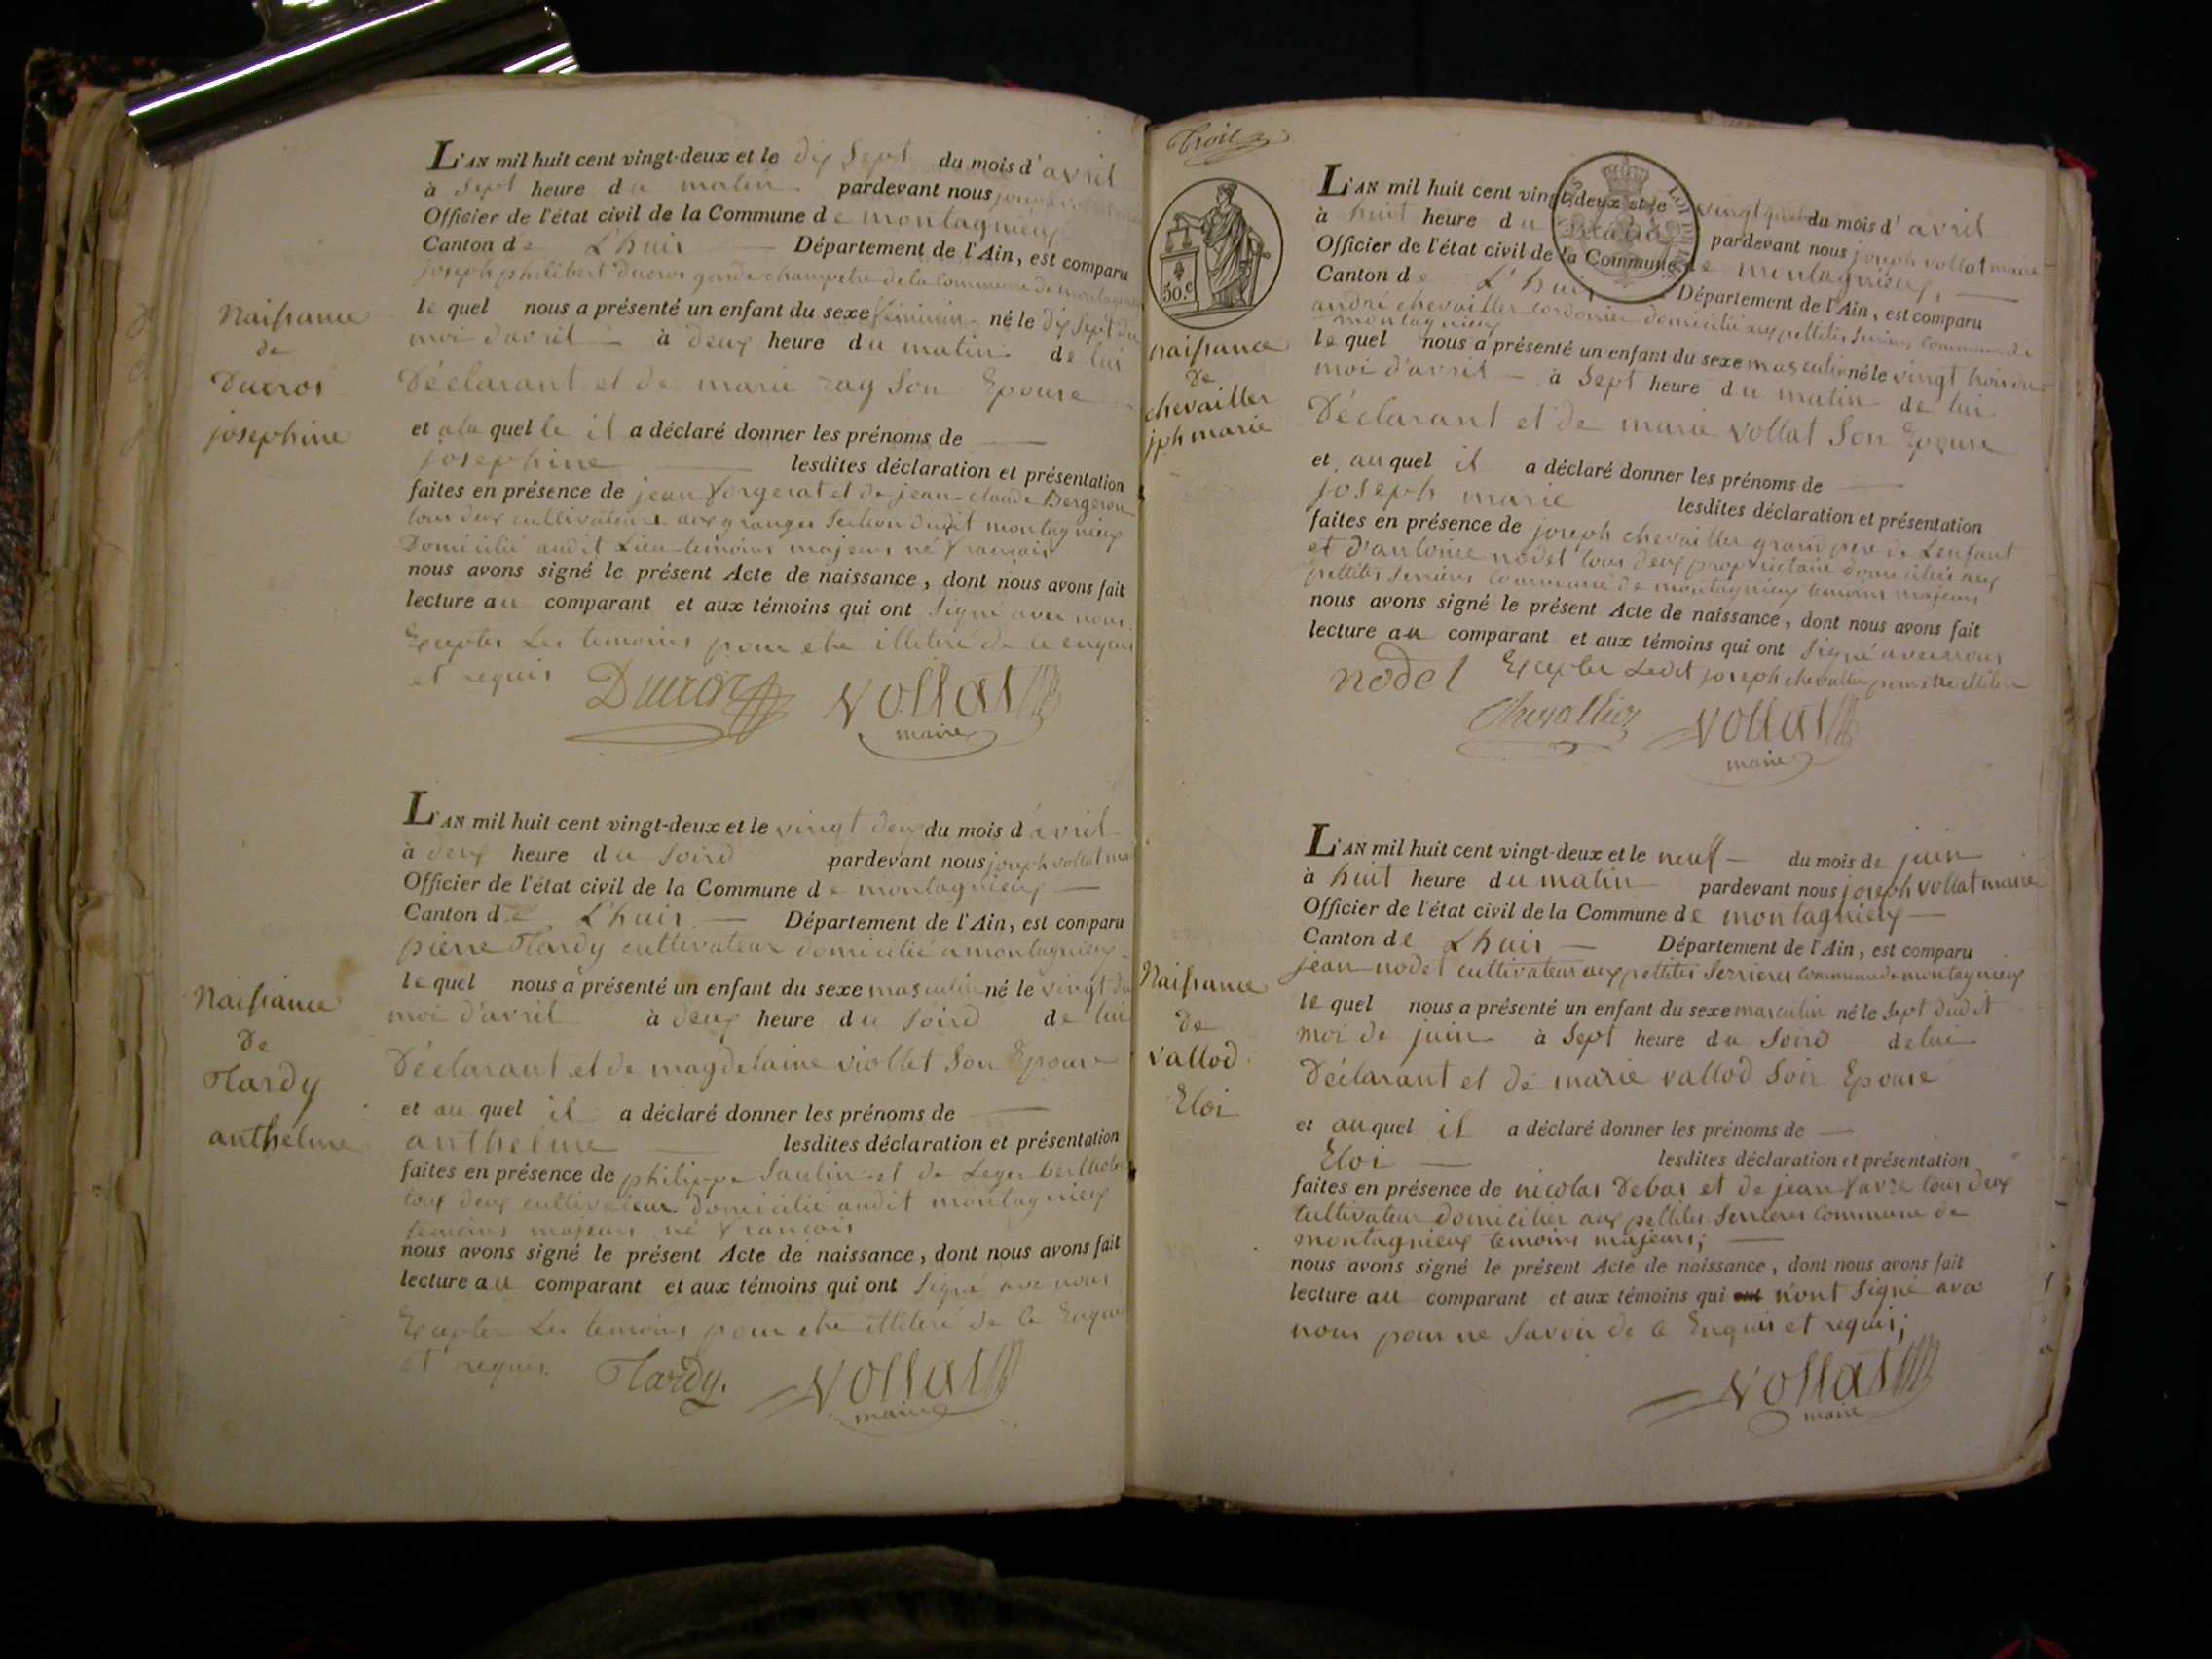 L'AN mil huit cent vingt-deux et le dix Sept du mois d'avril
à Sept heure du matin pardevant nous joseph
Officier de l'état civil de la Commune de montagnieux
Canton de L'huis Département de l'Ain, est comparu
joseph philibert Ducros garde champetre de la Commune de montagnieux
Naissance
de
Ducros
josephine
le quel nous a présenté un enfant du sexe féminin né le dix Sept du
moi d'avril à deux heure du matin de lui
Déclarant et de marie ray Son Epouse
et a la quelle il a déclaré donner les prénoms de
josephine lesdites déclaration et présentation
faites en présence de jean forgerat et de jean-claude Bergeron
tous deux cultivateurs aux granges Section dudit montagnieux
Domicilié audit Lieu temoins majeurs né français
nous avons signé le présent Acte de naissance, dont nous avons fait
lecture au comparant et aux témoins qui ont Signé avec nous
Excepter Les temoins pour etre illiteré de ce enquis
et requis Ducros vollat
maire
L'AN mil huit cent vingt-deux et le vingt deux du mois d'avril
à deux heure du Soird pardevant nous joseph vollat
Officier de l'état civil de la Commune de montagnieux
Canton de L'huis Département de l'Ain, est comparu
pierre Hardy cultivateur domicilié a montagnieux
Naissance
De
Hardy
anthelme
le quel nous a présenté un enfant du sexe masculin né le vingt du
moi d'avril à deux heure du Soird de lui
Déclarant et de magdelaine viollet Son Epouse
et au quel il a déclaré donner les prénoms de
anthelme lesdites déclaration et présentation
faites en présence de philippe Saulin et de Leger
tous deux cultivateur domicilié audit montagnieux
temoins majeurs né français
nous avons signé le présent Acte de naissance, dont nous avons fait
lecture au comparant et aux témoins qui ont Signé ave nous
Excepter Les temoins pour etre illiteré de ce Enquis
et requis. Hardy. vollat
maire
Troit
50.c
L'AN mil huit cent vingt-deux et le vingt quatre du mois d'avril
à huit heure du matin pardevant nous joseph vollat maire
Officier de l'état civil de la Commune de montagnieux,
Canton de L'huis Département de l'Ain, est comparu
andré chevailler cordonier domicilié aux pettites Serrieres Commune de
montagnieux
naissance
de
chevailler
jph marie
le quel nous a présenté un enfant du sexe masculin né le vingt trois du
moi d'avril à Sept heure du matin de lui
Déclarant et de marie vollat Son Epouse
et au quel il a déclaré donner les prénoms de
joseph marie lesdites déclaration et présentation
faites en présence de joseph chevailler grand pere de Lenfant
et d'antoine nodet tous deux proprietaire domicilié aux
pettites Serrieres Commune de montagnieux temoins majeurs
nous avons signé le présent Acte de naissance, dont nous avons fait
lecture au comparant et aux témoins qui ont Signé avec nous
nodet Excepter Ledit joseph chevailler pour etre illiteré
Chevallier vollat
maire
L'AN mil huit cent vingt-deux et le neuf du mois de juin
à huit heure du matin pardevant nous joseph vollat maire
Officier de l'état civil de la Commune de montagnieux
Canton de Lhuis Département de l'Ain, est comparu
jean nodet cultivateur aux pettites Serrieres Commune de montagnieux
Naissance
de
vallod
Eloi
le quel nous a présenté un enfant du sexe masculin né le Sept dudit
moi de juin à Sept heure du Soird de lui
Déclarant et de marie vallod Son Epouse
et au quel il a déclaré donner les prénoms de
Eloi lesdites déclaration et présentation
faites en présence de nicolas Debas et de jean favre tous deux
Cultivateur domicilier aux pettites Serrieres Commune de
montagnieux temoins majeurs;
nous avons signé le présent Acte de naissance, dont nous avons fait
lecture au comparant et aux témoins qui ont n'ont Signé avec
nous pour ne Savoir de ce Enquis et requis;
vollat
maire